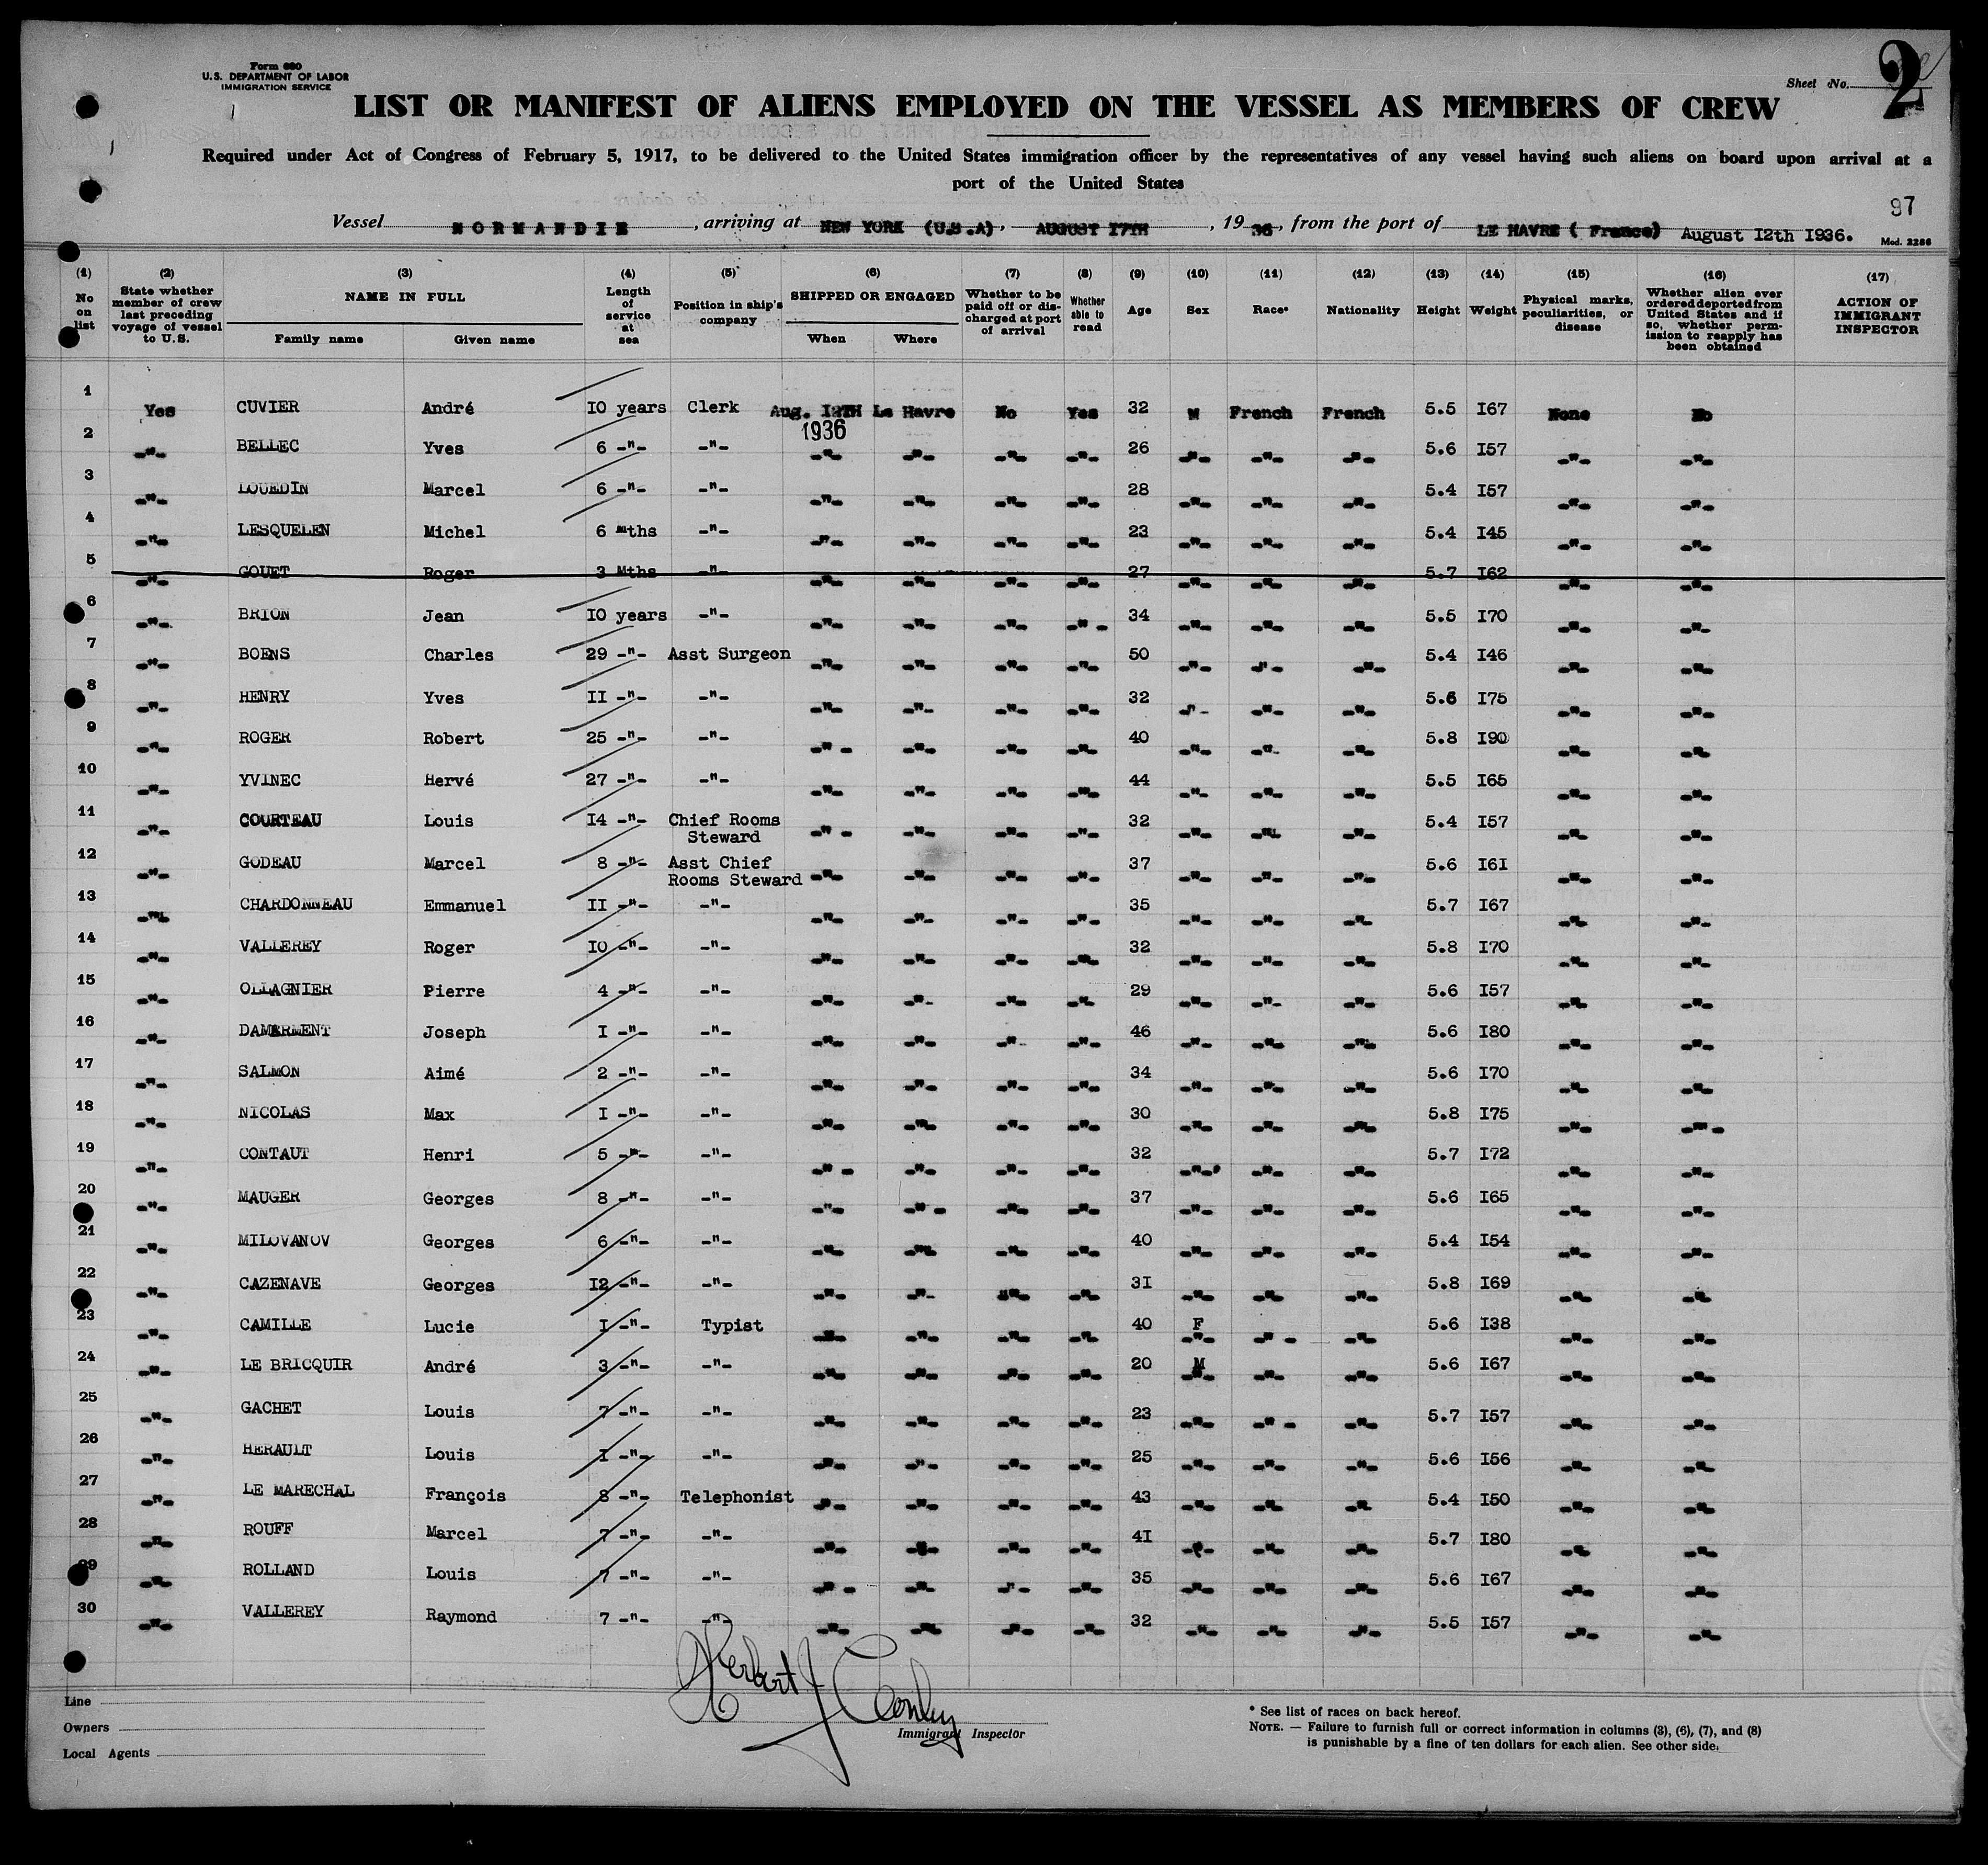 Form 680
U.S. DEPARTMENT OF LABOR
IMMIGRATION SERVICE
Sheet No. 2
LIST OR MANIFEST OF ALIENS EMPLOYED ON THE VESSEL AS MEMBERS OF CREW
Required under Act of Congress of February 5, 1917, to be delivered to the United States immigration officer by the representatives of any vessel having such aliens on board upon arrival at a
port of the United States
97
Vessel NORMANDIE, arriving at NEW YORK (U.S.A), AUGUST I7TH, 1936, from the port of LE HAVRE ( France) August I2th I936. Mod. 2286
(1) (2) (3) (4) (5) (6) (7) (8) (9) (10) (11) (12) (13) (14) (15) (16) (17)
No on list | State whether member of crew last preceding voyage of vessel to U.S. | NAME IN FULL Family name Given name | Length of service at sea | Position in ship's company | SHIPPED OR ENGAGED When Where | Whether to be paid off or discharged at port of arrival | Whether able to read | Age | Sex | Race* | Nationality | Height | Weight | Physical marks, peculiarities, or disease | Whether alien ever ordered deported from United States and if so, whether permission to reapply has been obtained | ACTION OF IMMIGRANT INSPECTOR
1 Yes CUVIER André IO years Clerk Aug. I2TH 1936 Le Havre No Yes 32 M French French 5.5 I67 None No
2 -"- BELLEC Yves 6 -"- -"- -"- -"- -"- -"- 26 -"- -"- -"- 5.6 I57 -"- -"-
3 -"- LOUEDIN Marcel 6 -"- -"- -"- -"- -"- -"- 28 -"- -"- -"- 5.4 I57 -"- -"-
4 -"- LESQUELEN Michel 6 mths -"- -"- -"- -"- -"- 23 -"- -"- -"- 5.4 I45 -"- -"-
5 -"- GOUET Roger 3 Mths -"- -"- -"- -"- -"- 27 -"- -"- -"- 5.7 I62 -"- -"-
6 -"- BRION Jean IO years -"- -"- -"- -"- -"- 34 -"- -"- -"- 5.5 I70 -"- -"-
7 -"- BOENS Charles 29 -"- Asst Surgeon -"- -"- -"- -"- 50 -"- -"- -"- 5.4 I46 -"- -"-
8 -"- HENRY Yves II -"- -"- -"- -"- -"- -"- 32 -"- -"- -"- 5.6 I75 -"- -"-
9 -"- ROGER Robert 25 -"- -"- -"- -"- -"- -"- 40 -"- -"- -"- 5.8 I90 -"- -"-
10 -"- YVINEC Hervé 27 -"- -"- -"- -"- -"- -"- 44 -"- -"- -"- 5.5 I65 -"- -"-
11 -"- COURTEAU Louis I4 -"- Chief Rooms Steward -"- -"- -"- -"- 32 -"- -"- -"- 5.4 I57 -"- -"-
12 -"- GODEAU Marcel 8 -"- Asst Chief Rooms Steward -"- -"- -"- -"- 37 -"- -"- -"- 5.6 I6I -"- -"-
13 -"- CHARDONNEAU Emmanuel II -"- -"- -"- -"- -"- -"- 35 -"- -"- -"- 5.7 I67 -"- -"-
14 -"- VALLEREY Roger IO -"- -"- -"- -"- -"- -"- 32 -"- -"- -"- 5.8 I70 -"- -"-
15 -"- OLLAGNIER Pierre 4 -"- -"- -"- -"- -"- -"- 29 -"- -"- -"- 5.6 I57 -"- -"-
16 -"- DAMERMENT Joseph I -"- -"- -"- -"- -"- -"- 46 -"- -"- -"- 5.6 I80 -"- -"-
17 -"- SALMON Aimé 2 -"- -"- -"- -"- -"- -"- 34 -"- -"- -"- 5.6 I70 -"- -"-
18 -"- NICOLAS Max I -"- -"- -"- -"- -"- -"- 30 -"- -"- -"- 5.8 I75 -"- -"-
19 -"- CONTAUT Henri 5 -"- -"- -"- -"- -"- -"- 32 -"- -"- -"- 5.7 I72 -"- -"-
20 -"- MAUGER Georges 8 -"- -"- -"- -"- -"- -"- 37 -"- -"- -"- 5.6 I65 -"- -"-
21 -"- MILOVANOV Georges 6 -"- -"- -"- -"- -"- -"- 40 -"- -"- -"- 5.4 I54 -"- -"-
22 -"- CAZENAVE Georges I2 -"- -"- -"- -"- -"- -"- 3I -"- -"- -"- 5.8 I69 -"- -"-
23 -"- CAMILLE Lucie I -"- Typist -"- -"- -"- -"- 40 F -"- -"- -"- 5.6 I38 -"- -"-
24 -"- LE BRICQUIR André 3 -"- -"- -"- -"- -"- -"- 20 M -"- -"- -"- 5.6 I67 -"- -"-
25 -"- GACHET Louis 7 -"- -"- -"- -"- -"- -"- 23 -"- -"- -"- 5.7 I57 -"- -"-
26 -"- HERAULT Louis I -"- -"- -"- -"- -"- -"- 25 -"- -"- -"- 5.6 I56 -"- -"-
27 -"- LE MARECHAL François 8 -"- Telephonist -"- -"- -"- -"- 43 -"- -"- -"- 5.4 I50 -"- -"-
28 -"- ROUFF Marcel 7 -"- -"- -"- -"- -"- -"- 4I -"- -"- -"- 5.7 I80 -"- -"-
29 -"- ROLLAND Louis 7 -"- -"- -"- -"- -"- -"- 35 -"- -"- -"- 5.6 I67 -"- -"-
30 -"- VALLEREY Raymond 7 -"- -"- -"- -"- -"- -"- 32 -"- -"- -"- 5.5 I57 -"- -"-
Herbert J Conley
Immigrant Inspector
Line
Owners
Local Agents
* See list of races on back hereof.
NOTE. — Failure to furnish full or correct information in columns (3), (6), (7), and (8)
is punishable by a fine of ten dollars for each alien. See other side.